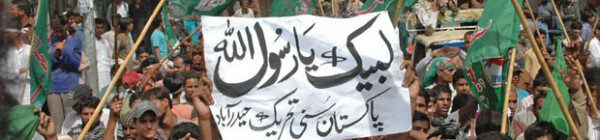 لبیک یا رسول اللہ
پاکستان سنی تحریک حیدرآباد